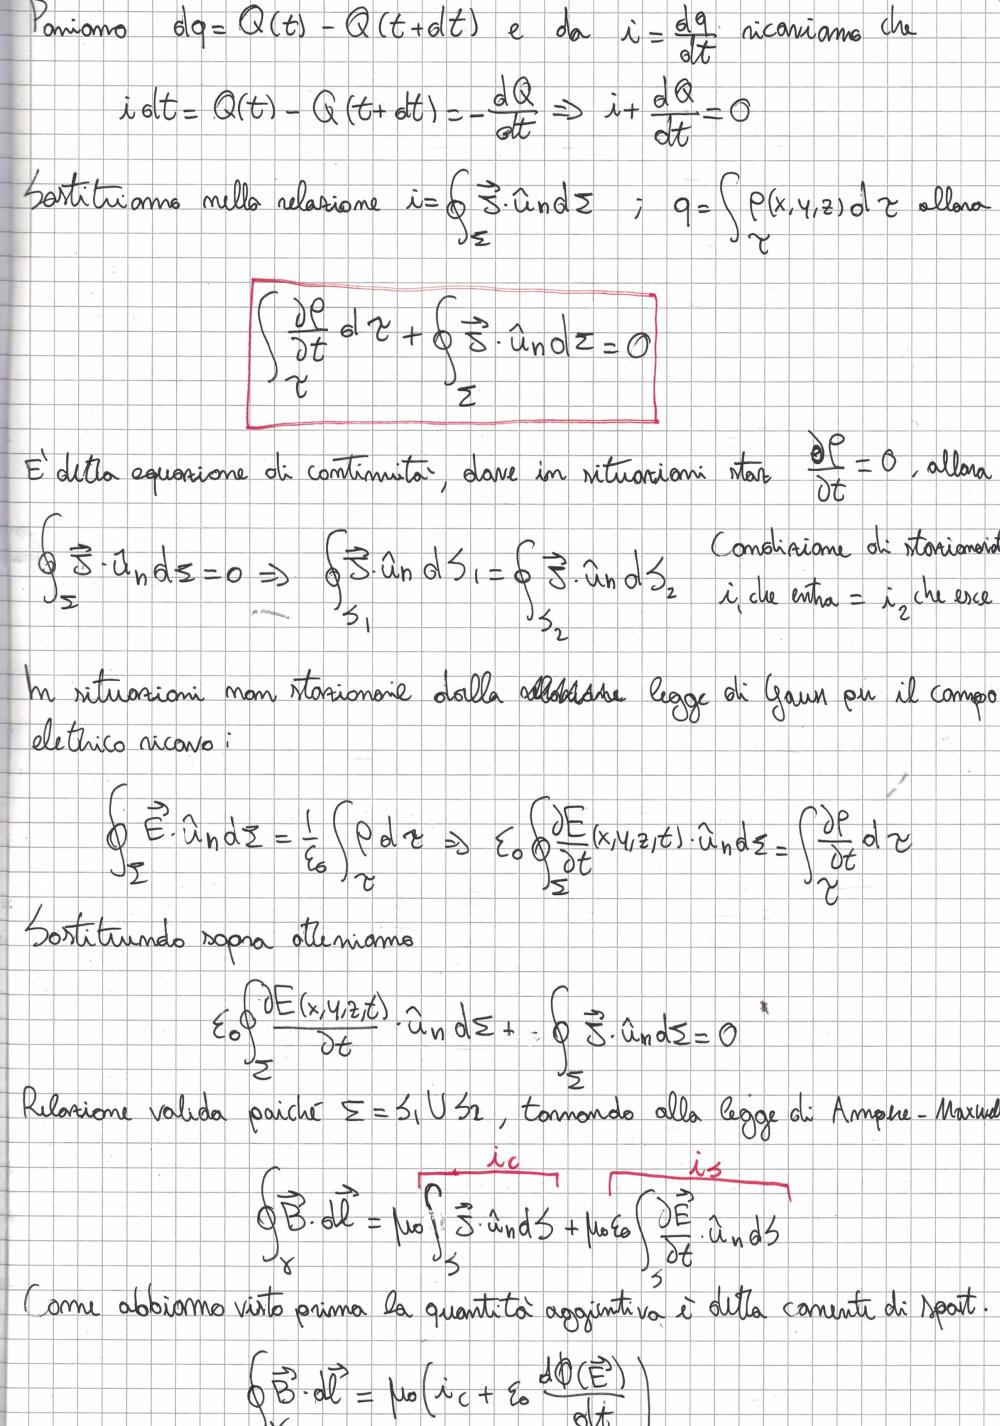 Poniamo dq = Q(t) - Q(t+dt) e da i = dq/dt ricaviamo che
i dt = Q(t) - Q(t+dt) = - dQ/dt ⇒ i + dQ/dt = 0
Sostituiamo nella relazione i = ∮_Σ J⃗ · û_n dΣ ; q = ∫_τ ρ(x,y,z) dτ allora
∫_τ ∂ρ/∂t dτ + ∮_Σ J⃗ · û_n dΣ = 0
E' detta equazione di continuità, dove in situazioni staz ∂ρ/∂t = 0, allora
∮_Σ J⃗ · û_n dΣ = 0 ⇒ ∮_S₁ J⃗ · û_n dS₁ = ∮_S₂ J⃗ · û_n dS₂ Condizione di stazionariet
i₁ che entra = i₂ che esce
In situazioni non stazionarie dalla legge di Gauss per il campo
elettrico ricavo :
∮_Σ E⃗ · û_n dΣ = 1/ε₀ ∫_τ ρ dτ ⇒ ε₀ ∮_Σ ∂E/∂t (x,y,z,t) · û_n dΣ = ∫_τ ∂ρ/∂t dτ
Sostituendo sopra otteniamo
ε₀ ∮_Σ ∂E(x,y,z,t)/∂t · û_n dΣ + ∮_Σ J⃗ · û_n dΣ = 0
Relazione valida poiché Σ = S₁ ∪ S₂, tornando alla legge di Ampere-Maxwell
i_c i_s
∮_γ B⃗ · dl⃗ = μ₀ ∫_S J⃗ · û_n dS + μ₀ε₀ ∫_S ∂E⃗/∂t · û_n dS
Come abbiamo visto prima la quantità aggiuntiva è detta corrente di spost.
∮_γ B⃗ · dl⃗ = μ₀ (i_c + ε₀ dΦ(E⃗)/dt)